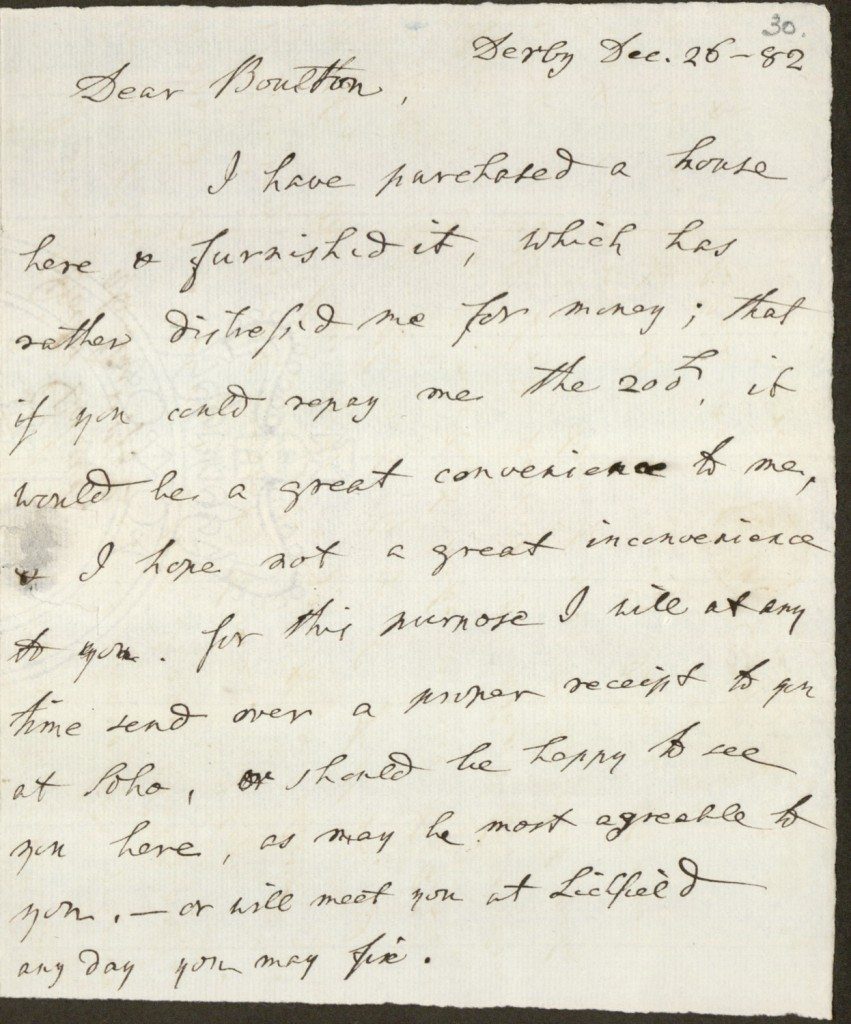 30.
Derby Dec. 26 - 82
Dear Boulton,
I have purchased a house
here & furnished it, which has
rather distressed me for money; that
if you could repay me the 200£, it
would be a great convenience to me,
& I hope not a great inconvenience
to you. for this purpose I will at any
time send over a proper receipt to you
at Soho, or should be happy to see
you here, as may be most agreable to
you. — or will meet you at Lichfield
any day you may fix.